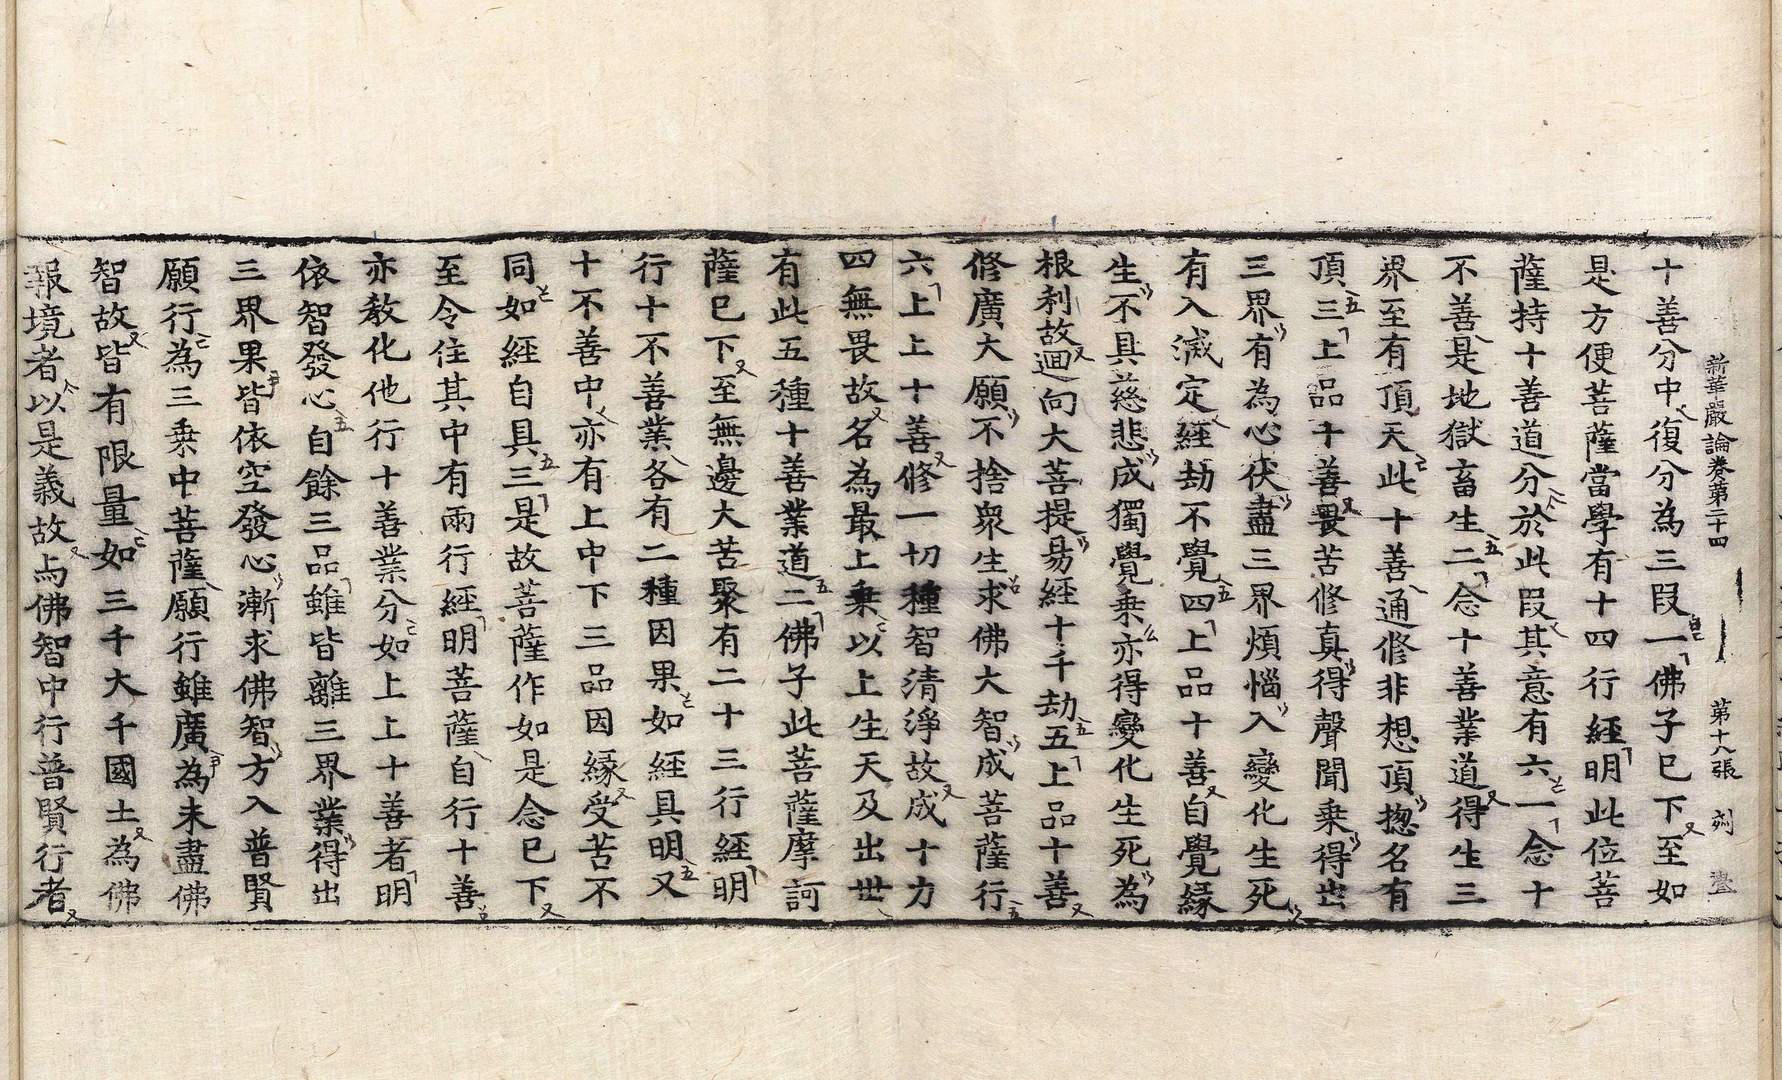 新華嚴論卷第二十四　第十八張　烈
十善分中復分為三叚一佛子已下至如
是方便菩薩當學有十四行經明此位菩
薩持十善道分於此叚其意有六一念十
不善是地獄畜生二念十善業道得生三
界至有頂天此十善通修非想頂揔名有
頂三上品十善畏苦修真得聲聞乗得出
三界有為心伏盡三界煩惱入變化生死
有入滅定經劫不覺四上品十善自覺緣
生不具慈悲成獨覺乗亦得變化生死為
根利故迴向大菩提昜經十千劫五上品十善
修廣大願不捨衆生求佛大智成菩薩行
六上上十善修一切種智清淨故成十力
四無畏故名為最上乗以上生天及出世
有此五種十善業道二佛子此菩薩摩訶
薩已下至無邊大苦聚有二十三行經明
行十不善業各有二種因果如經具明又
十不善中亦有上中下三品因縁受苦不
同如經自具三是故菩薩作如是念已下
至令住其中有兩行經明菩薩自行十善
亦教化他行十善業分如上上十善者明
依智發心自餘三品雖皆離三界業得出
三界果皆依空發心漸求佛智方入普賢
願行為三乗中菩薩願行雖廣為未盡佛
智故皆有限量如三千大千國土為佛
報境者以是義故与佛智中行普賢行者